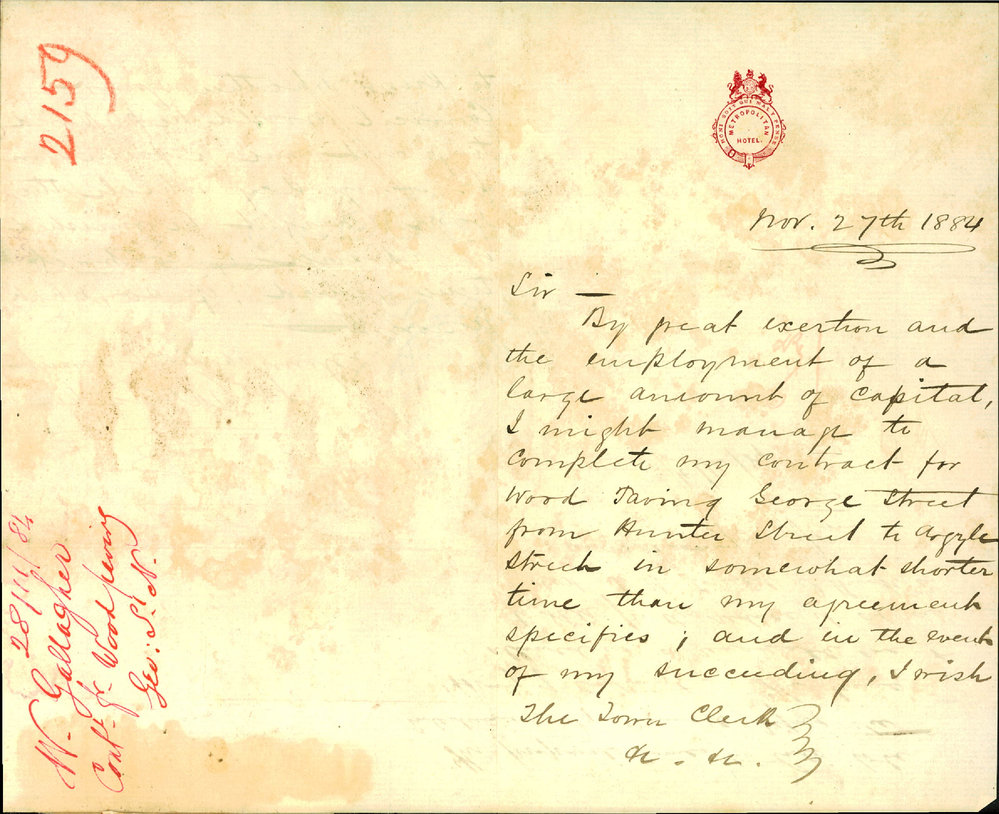 2159
28/11/84
W. Gallagher
Cont. fr Wood paving
Geo: St. N.
HONI SOIT QUI MAL Y PENSE
METROPOLITAN
HOTEL.
Nov. 27th 1884
Sir —
By great exertion and
the employment of a
large amount of capital,
I might manage to
complete my contract for
Wood Paving George Street
from Hunter Street to Argyle
Street in somewhat shorter
time than my agreement
specifies; and in the event
of my succeeding, I wish
The Town Clerk